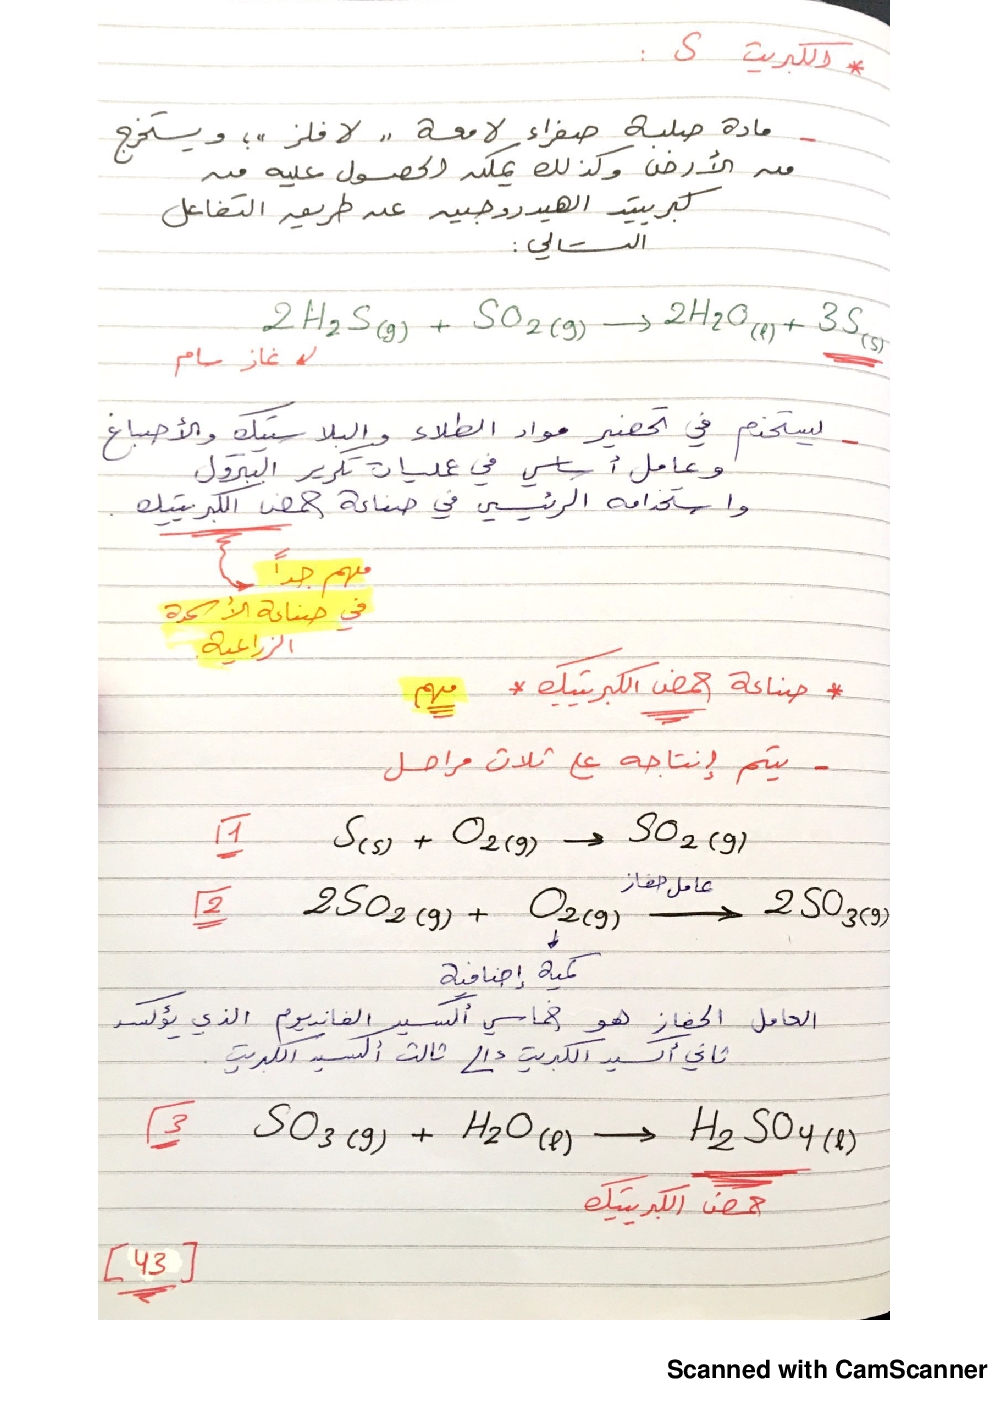 * الكبريت S :
- مادة صلبة صفراء لامعة " لا فلز "، ويستخرج
من الأرض وكذلك يمكن الحصول عليه من
كبريتيد الهيدروجين عن طريق التفاعل
التالي :
2H₂S(g) + SO₂(g) → 2H₂O(l) + 3S(s)
غاز سام
- يستخدم في تحضير مواد الطلاء والبلاستيك والأصباغ
وعامل أساسي في عمليات تكرير البترول
واستخدامه الرئيسي في صناعة حمض الكبريتيك .
مهم جداً
في صناعة الأسمدة
الزراعية
* صناعة حمض الكبريتيك * مهم
- يتم إنتاجه على ثلاث مراحل
1 S(s) + O₂(g) → SO₂(g)
عامل حفاز
2 2SO₂(g) + O₂(g) → 2SO₃(g)
كمية إضافية
العامل الحفاز هو خماسي أكسيد الفانديوم الذي يؤكسد
ثاني أكسيد الكبريت إلى ثالث أكسيد الكبريت .
3 SO₃(g) + H₂O(l) → H₂SO₄(l)
حمض الكبريتيك
[43]
Scanned with CamScanner